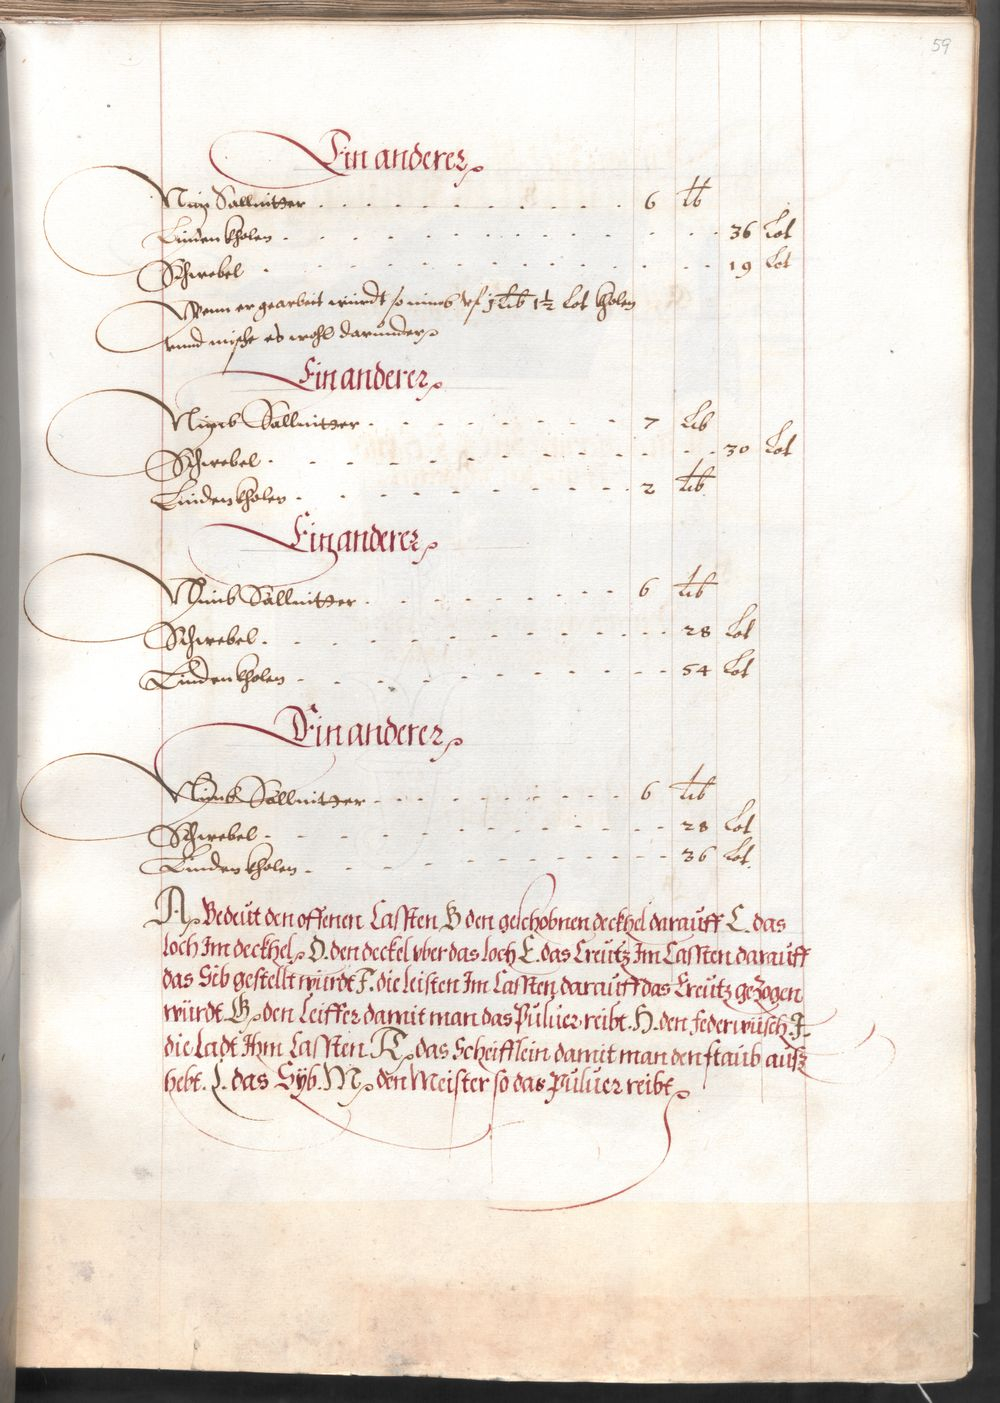 59
Ein anderer
Nim Sallnitter . . . . . . . . . . . . 6 lib
Linden kholen . . . . . . . . . . . . 36 Lot
Schwebel . . . . . . . . . . . . 19 Lot
Wenn er gearbeit würdt so nimb vf 1 lib 1½ Lot kholen
vnnd mische es wohl darunder
Ein anderer
Sallnitter . . . . . . . . . . 7 Lib
Schwebel . . . . . . . . . . . . 30 Lot
Lindenkholen . . . . . . . . . . 2 Lib
Ein anderer
Nimb Sallnitter . . . . . . . . . . 6 Lib
Schwebel . . . . . . . . . . . . 28 Lot
Linden kholen . . . . . . . . . . 54 Lot
Ein anderer
Sallnitter . . . . . . . . . . 6 Lib
Schwebel . . . . . . . . . . . . 28 Lot
Linden kholen . . . . . . . . . . 36 Lot
A Bedeüt den offenen Cassten B den geschobnen deckhel darauff C. das
loch Im deckhel D. den deckel vber das loch E. das Creütz Im Cassten darauff
das Sib gestellt würdt F. die leisten Im Cassten darauff das Creütz gezogen
würdt G den Leiffer damit man das Puluer reibt. H. den federwüsch. I.
die Ladt Ihm Cassten K das Scheifflein damit man den staub ausz
hebt. L. das Syb. M den Meister so das Puluer reibt